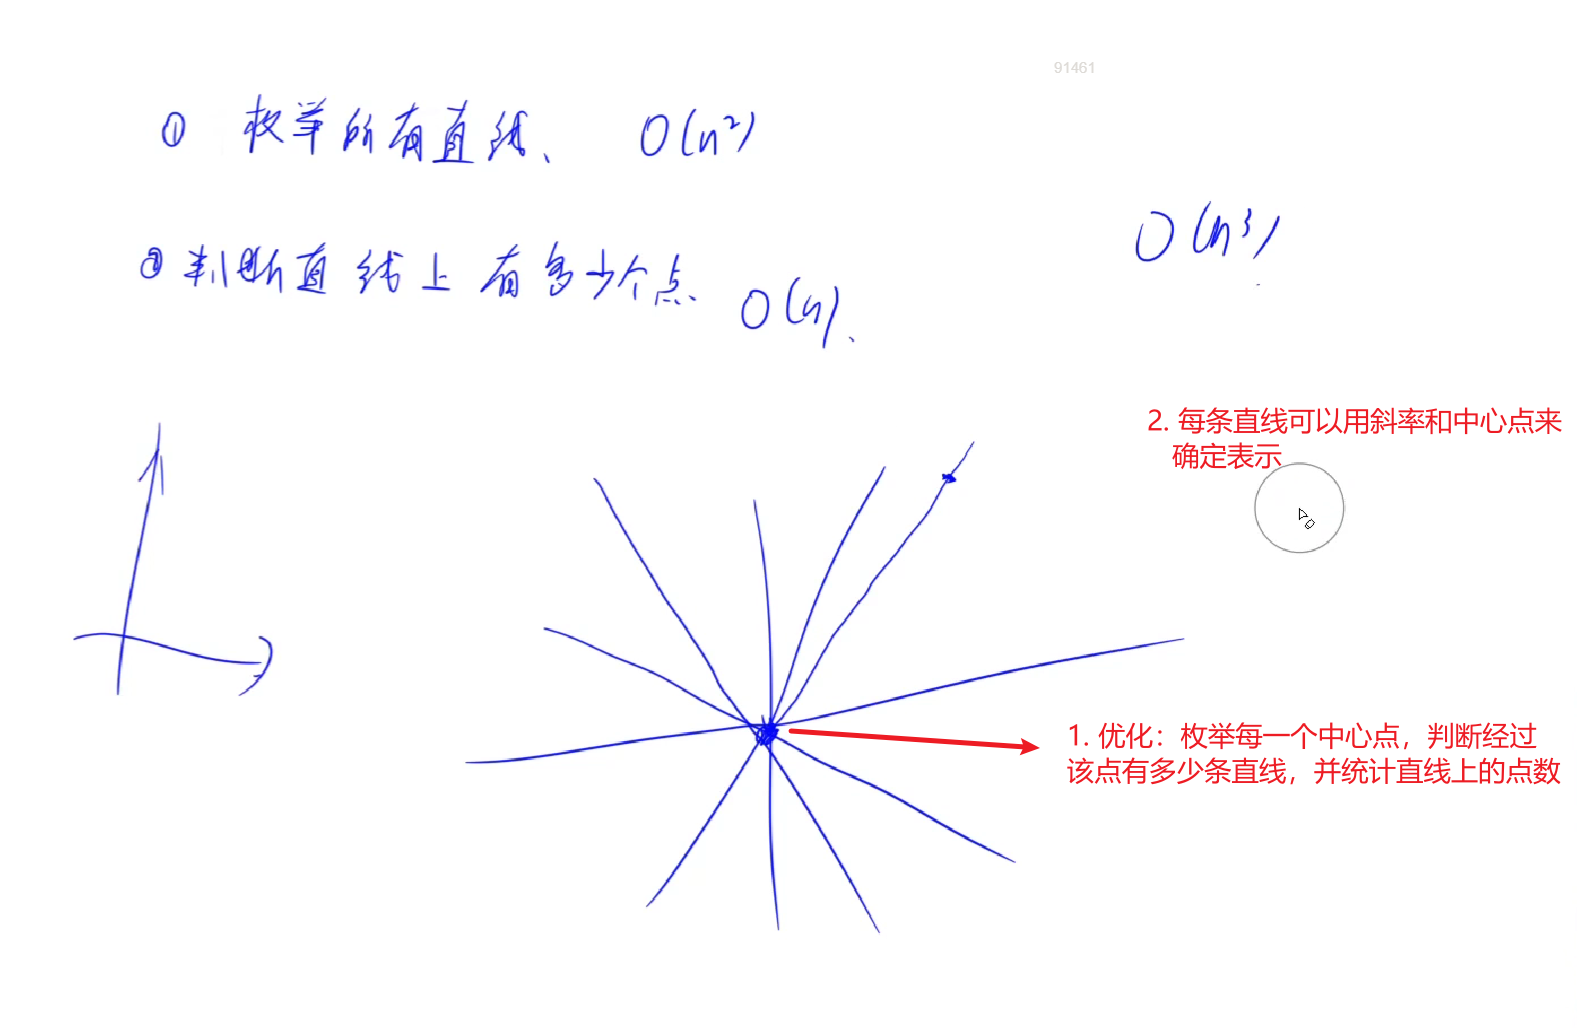 91461
① 枚举所有直线、 O(n²)
O(n³)
② 判断直线上有多少个点、 O(n)、
2. 每条直线可以用斜率和中心点来
确定表示
1. 优化：枚举每一个中心点，判断经过
该点有多少条直线，并统计直线上的点数